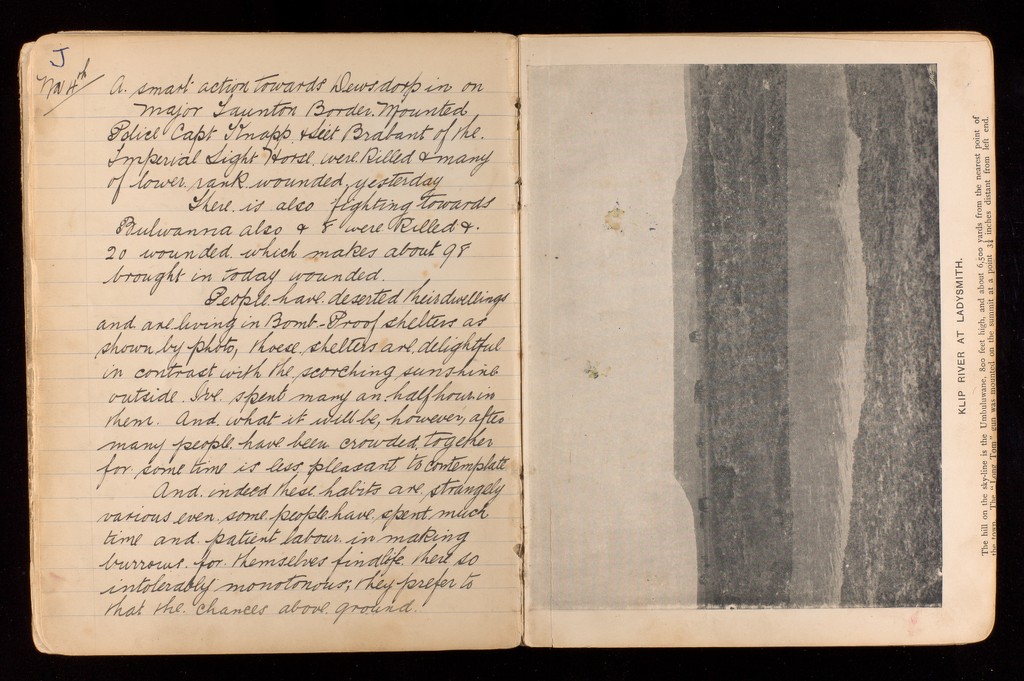 J
Nov 4th
A. smart action towards Dewsdorp in on
Major Taunton Border. Mounted
Police Capt Knapp & Liet Brabant of the.
Imperial Light Horse, were killed & many
of lower rank wounded, yesterday
There is also fighting towards
Bulwanna also & 8 were killed &.
20 wounded which makes about 98
brought in today wounded.
People have deserted their dwellings
and are living in Bomb-Proof shelters as
shown by photo, these shelters are delightful
in contrast with the scorching sunshine
outside. I've spent many an half hour in
them. And what it will be, however, after
many people have been crowded together
for some time is less pleasant to contemplate
And indeed these habits are strangely
various even some people have spent much
time and patient labour in making
burrows for themselves find life there so
intolerably monotonous, they prefer to
that the chances above ground.
KLIP RIVER AT LADYSMITH.
The hill on the sky-line is the Umbulwane, 800 feet high, and about 6,500 yards from the nearest point of
the town. The "Long Tom" gun was mounted on the summit at a point 3¼ inches distant from left end.